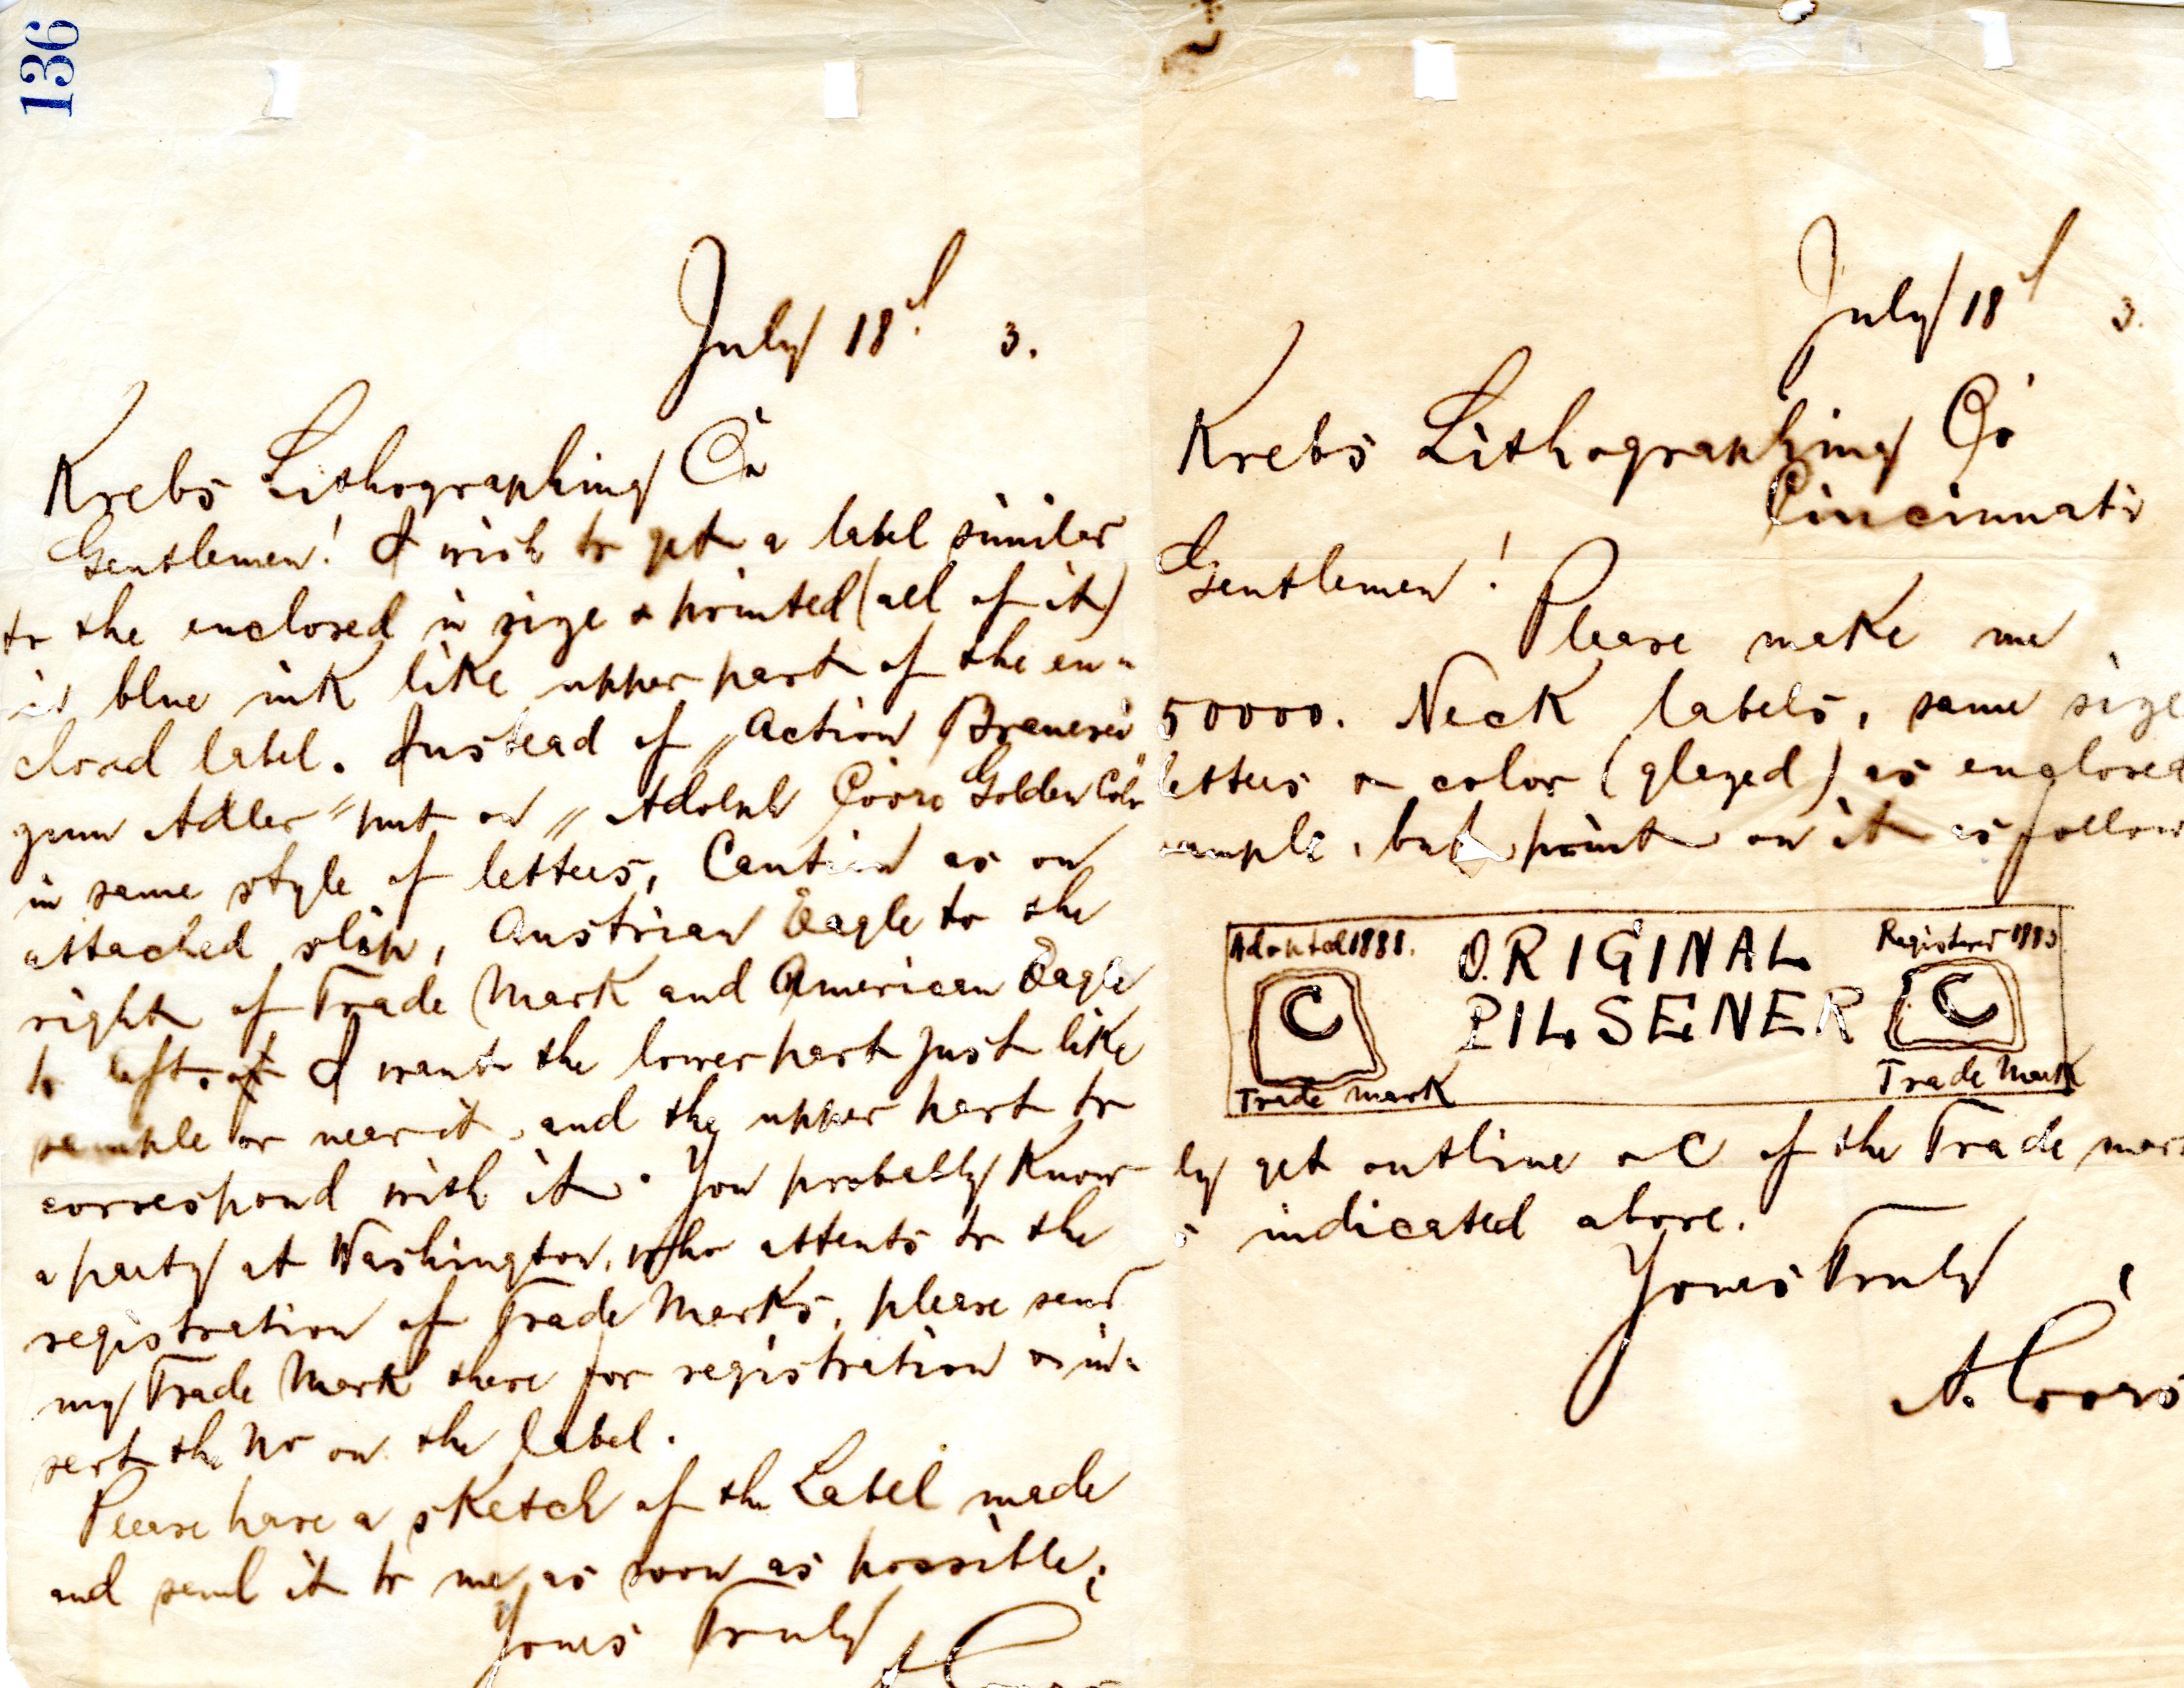 136
July 18th 3.
Krebs Lithographing Co
Gentlemen! I wish to get a label similar
to the enclosed in size & printed (all of it)
in blue ink like upper part of the en=
closed label. Instead of „Action Brauerei
zum Adler" put on „Adolph Coors Golden Colo"
in same style of letters, Caution as on
attached slip, Austrian Eagle to the
right of Trade Mark and American Eagle
to left. I want the lower part just like
sample or near it, and the upper part to
correspond with it. You probably Know
a party at Washington, who attents to the
registration of Trade Marks, please send
my Trade Mark there for registration & in=
sert the No on the label.
Please have a sketch of the Label made
and send it to me as soon as possible;
Yours Truly
A Coors
July 18th 3.
Krebs Lithographing Co
Cincinnati
Gentlemen!
Please make me
50000. Neck labels, same size
letters & color (glazed) as enclosed
sample, but print on it as follow
Adopted 1881. ORIGINAL Registered 1883
C PILSENER C
Trade Mark Trade Mark
ly get outline & C of the Trade mark
s indicated above.
Yours Truly
A. Coors